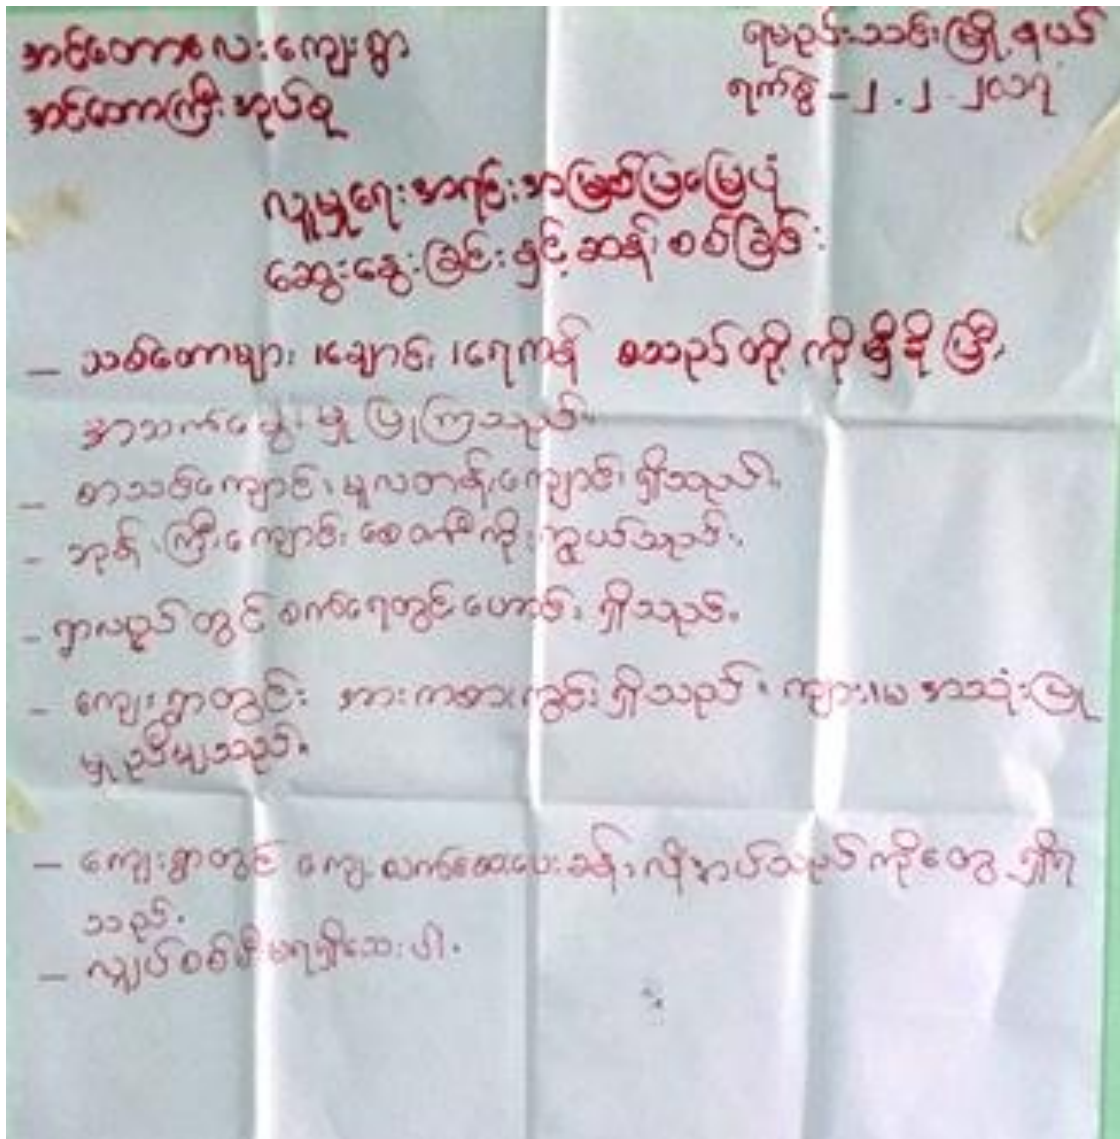 အင်တောလေးကျေးရွာ
အင်တောကြီးအုပ်စု
ရမည်းသင်းမြို့နယ်
ရက်စွဲ - ၂.၂.၂၀၁၇
လူမှုရေးအရင်းအမြစ်ပြမြေပုံ
ဆွေးနွေးခြင်းနှင့်ဆန်းစစ်ခြင်း
– သစ်တောများ၊ ချောင်း၊ ရေကန် စသည်တို့ကိုမှီခိုပြီး
အသက်မွေးမှုပြုကြသည်။
– စာသင်ကျောင်း၊ မူလတန်းကျောင်း ရှိသည်။
– ဘုန်းကြီးကျောင်း စေတီကိုးကွယ်သည်။
– ရွာလည်တွင် စက်ရေတွင်းဟောင်း ရှိသည်။
– ကျေးရွာတွင်း အားကစားကွင်းရှိသည်။ ကျား၊မ အသုံးပြု
မှုညီမျှသည်။
– ကျေးရွာတွင် ကျေးလက်ဆေးပေးခန်း လိုအပ်သည်ကိုတွေ့ရှိရ
သည်။
– လျှပ်စစ်မီးမရရှိသေးပါ။